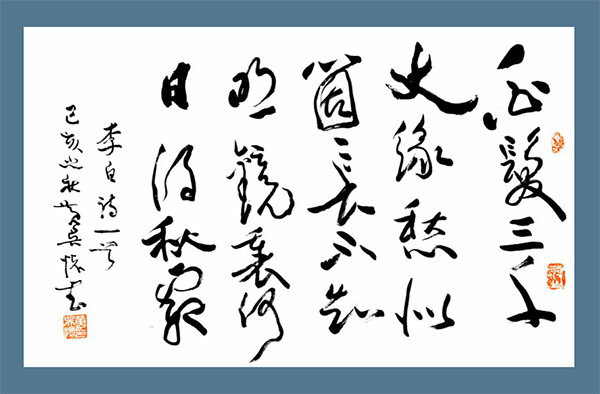 白髮三千
丈緣愁似
箇長不知
明鏡裏何
日得秋霜
李白詩一首
己亥之秋吳懷書